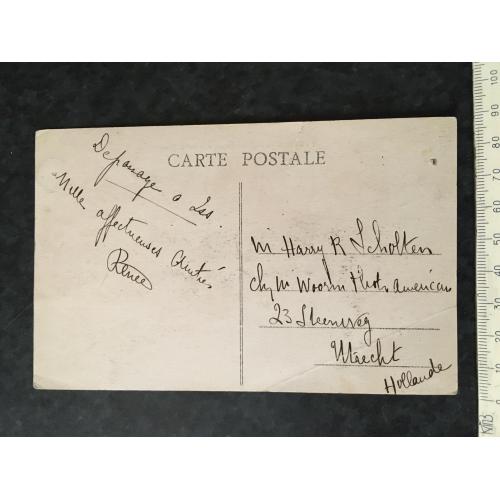 CARTE POSTALE
De passage a
Mille affectueuses
Renée
M Harry R Scholten
chz M Woorm Photo american
23 Steenweg
Utrecht
Hollande
100
90
80
70
60
50
40
30
20
10